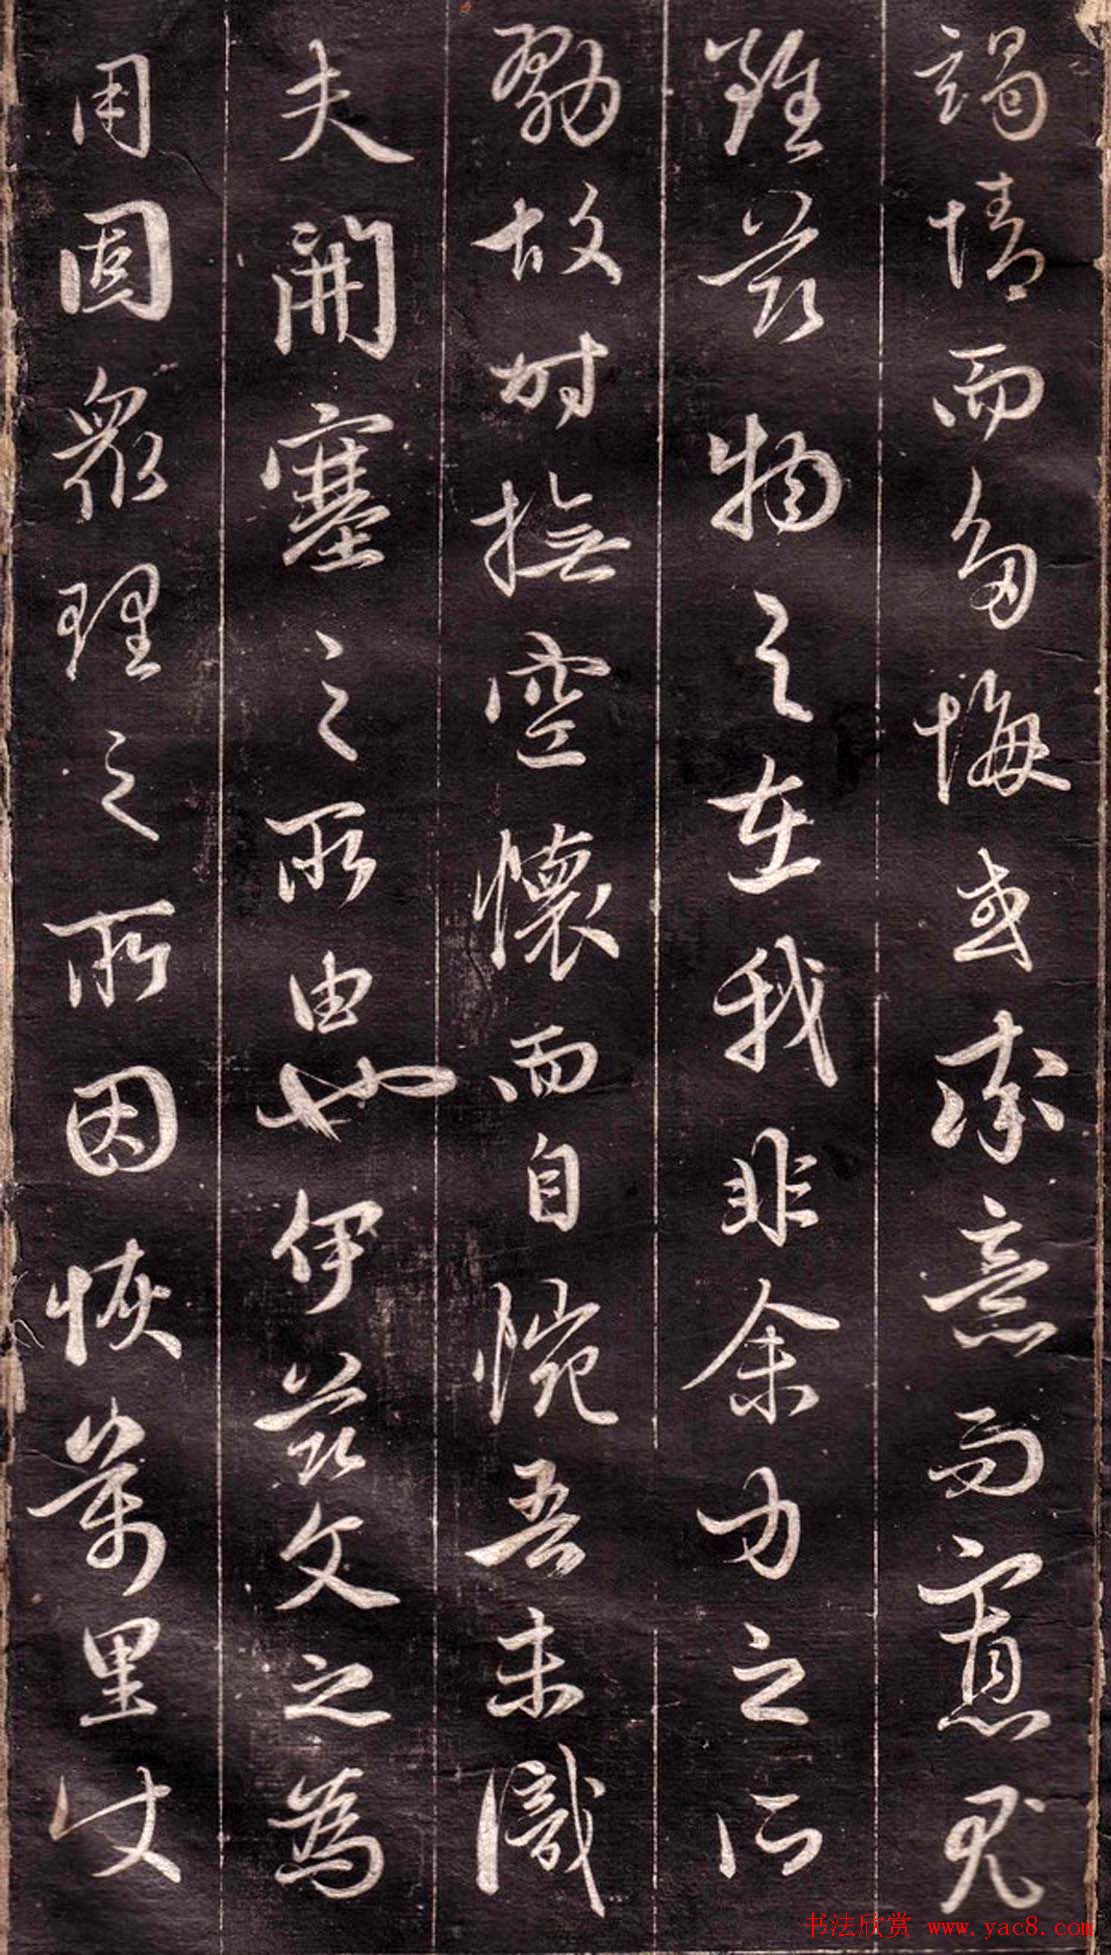 竭情而多悔或率意而寡尤
雖茲物之在我非余力之所
勠故時撫空懷而自惋吾未識
夫開塞之所由也伊茲文之為
用固衆理之所因恢萬里使
书法欣赏 www.yac8.com